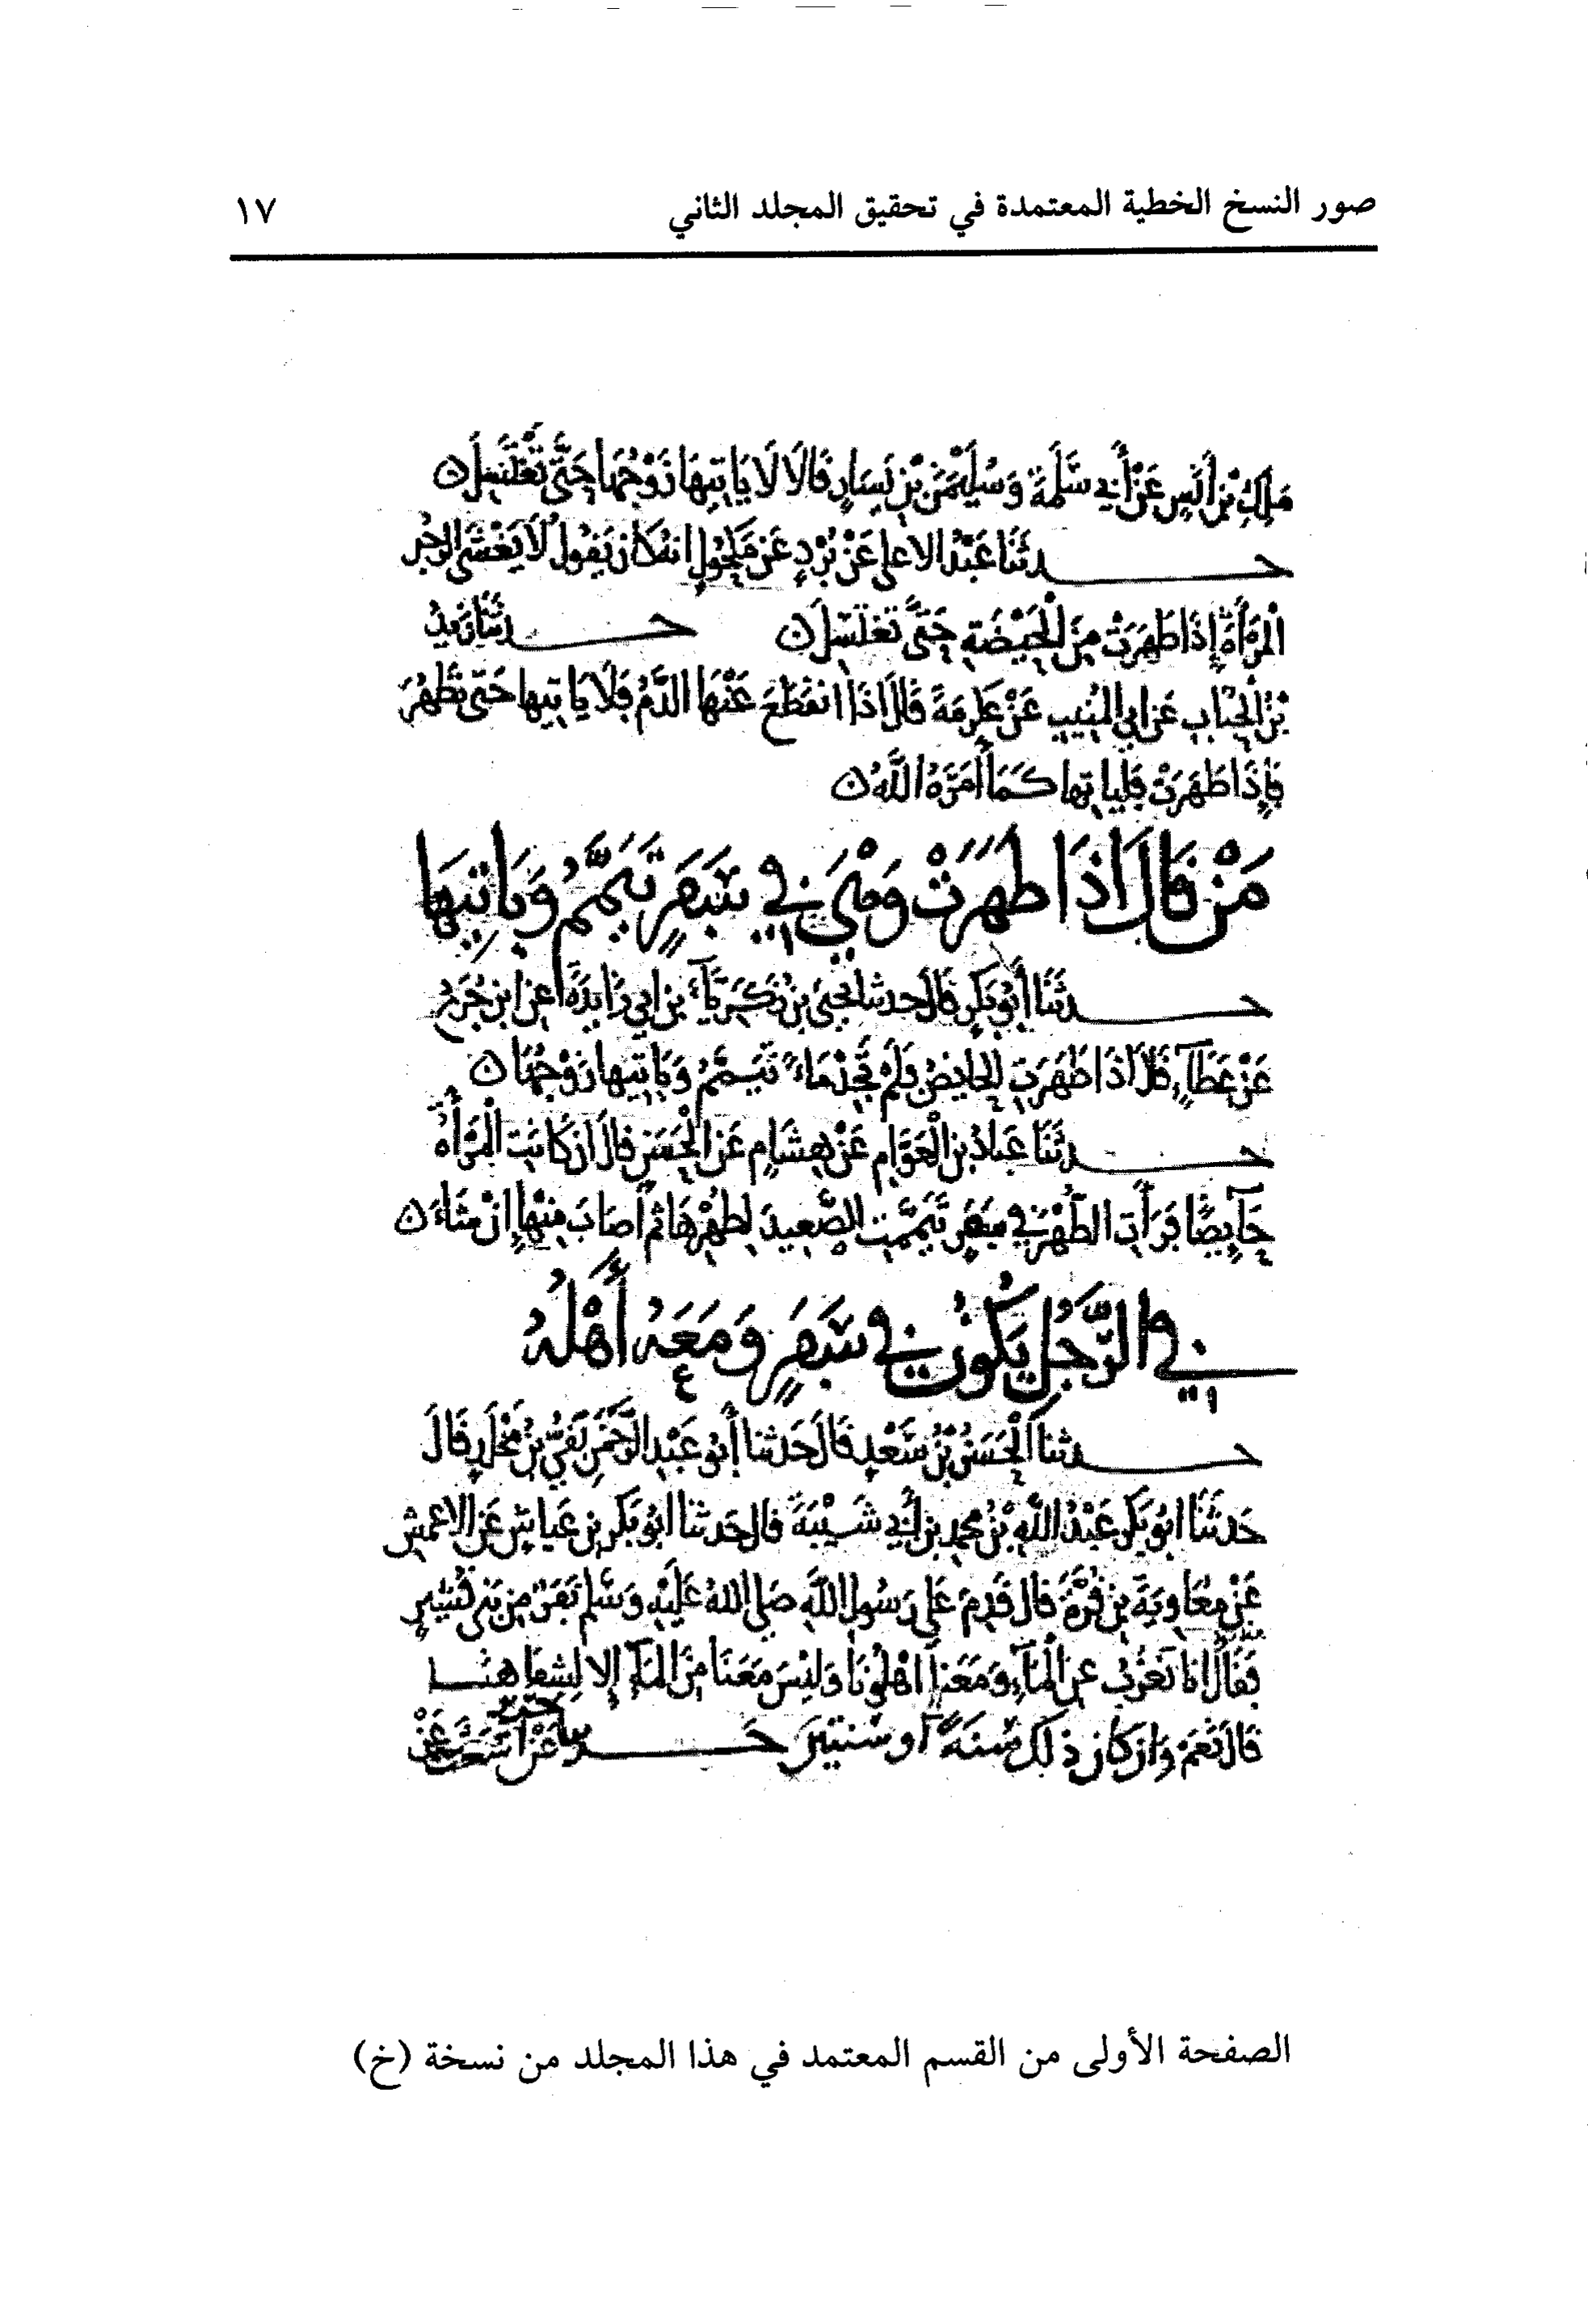 صور النسخ الخطية المعتمدة في تحقيق المجلد الثاني
١٧
مَلِكِ بْنِ أَنَسٍ عَنْ أَبِي سَلَمَةَ وَسُلَيْمَٰنَ بْنِ يَسَارٍ قَالَا لَا يَاتِيهَا زَوْجُهَا حَتَّى تَغْتَسِلَ
حدثَنَا عَبْدُ الاعلى عَنْ بُرْدٍ عَنْ مَكْحُولٍ انهُ كَانَ يَقُولُ لَا يَغْشَى الرجُل
الْمَرْأَةَ إِذَا طَهُرَتْ مِنَ الْحَيْضَةِ حَتَّى تَغْتَسِلَ حدثَنَا زَيدُ
بْنُ الْحُبَابِ عَن ابي الْمُنِيبِ عَنْ عكرِمَةَ قَالَ اذَا انقَطَعَ عَنْهَا الدَّمُ فَلَا يَاتيها حَتى تَطْهُرَ
فَإِذَا طَهَرَتْ فَلياتها كَمَا أَمَرَهُ اللَّهُ
مَنْ قَالَ اذَا طَهُرَتْ وَهْيَ في سَفَرٍ تَيَمَّمُ وَيَاتِيهَا
حدثَنَا أَبُو بَكْرٍ قَالَ حدثنا يحْيَى بْنُ زَكَرِيَّآءَ بن ابي زَايِدَةَ عن ابنِ جُرَيْجٍ
عَنْ عَطَآءٍ قَالَ اذَا طَهُرَتِ الحايضُ فَلَمْ تَجِدْ مَاءً تَيَمَّمُ وَيَاتيها زَوْجُهَا
حدثَنَا عَبادُ بن الْعَوَّامِ عَنْ هِشَامٍ عَن الْحَسَنِ قَالَ ان كَانَتِ الْمَرْأَةُ
حَآيِضًا فَرَأَتِ الطُّهْرَ فِي سَفَرٍ تَيَمَّمَتِ الصَّعِيدَ لِطُهْرِهَا ثم أَصَابَ مِنْهَا إِنْ شَاءَ
في الرَّجُلِ يَكُونُ فِي سَفَرٍ وَمَعَهُ أَهْلُهُ
حدثنا الْحَسَنُ بْنُ سَعْدٍ قَالَ حَدثنا أَبُو عَبْدِ الرَّحْمَنِ بَقِيُّ بْنُ مَخْلَدٍ قَالَ
حَدثَنَا ابُو بَكْرٍ عَبْدُ اللَّهِ بْنُ محمدِ بنِ أَبِي شَيْبَةَ قال حَدثنا ابُو بَكرِ بن عَياشٍ عَنِ الاعمش
عَنْ مُعَاوِيَةَ بْنِ قُرَّةَ قال قَدِمَ عَلَى رَسُولِ اللَّهِ صَلى اللهُ عَلَيْهِ وَسَلم نَفَرٌ مِن بَنِي قُشَيْرٍ
فَقَالُوا انا نَعْزُبُ عن الْمَآءِ وَمَعَنا اهْلُونَا وَلَيْسَ مَعَنَا مِنَ المآءِ إِلا لِشِفَاهنَا
قَالَ نَعَمْ وَان كانَ ذلكَ سَنَةً أو سَنَتَيْنِ حَدثنا حفص عَنْ أَشْعَثَ عَنْ
الصفحة الأولى من القسم المعتمد في هذا المجلد من نسخة (خ)